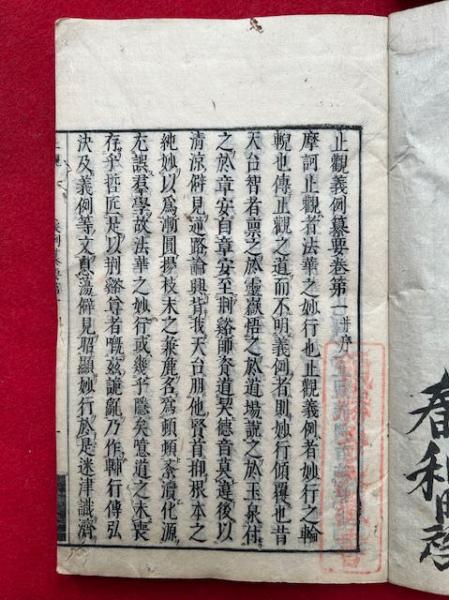 止觀義例纂要卷第一 并序
摩訶止觀者法華之妙行也止觀義例者妙行之輪
輗也傳止觀之道而不明義例者則妙行傾覆也昔
天台智者禀之於靈嶽悟之於道場説之於玉泉付
之於章安自章安至荆谿師資道契德音莫違後以
清涼僻見逕路論興背我天台朋他賢首抑根本之
純妙以爲漸圓揚枝末之兼麁名爲頓頓紊瀆化源
尢誤羣學故法華之妙行或幾乎隱矣噫道之未喪
存乎哲匠是以荆谿尊者慨兹詭亂乃作輔行傳弘
決及義例等文蕩僻見昭顯妙行於是迷津識濟
春利